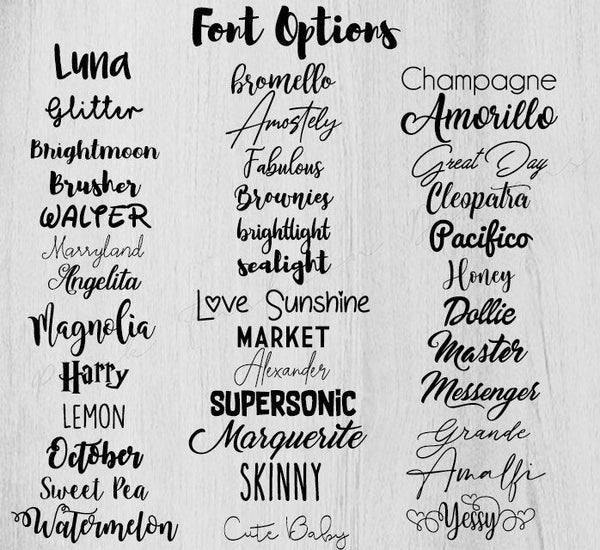 Font Options
Luna
Glitter
Brightmoon
Brusher
WALTER
Marryland
Angelita
Magnolia
Harry
LEMON
October
Sweet Pea
Watermelon
bromello
Amostely
Fabulous
Brownies
brightlight
sealight
Love Sunshine
MARKET
Alexander
SUPERSONIC
Marguerite
SKINNY
Cute Baby
Champagne
Amorillo
Great Day
Cleopatra
Pacifico
Honey
Dollie
Master
Messenger
Grande
Amalfi
Yessy